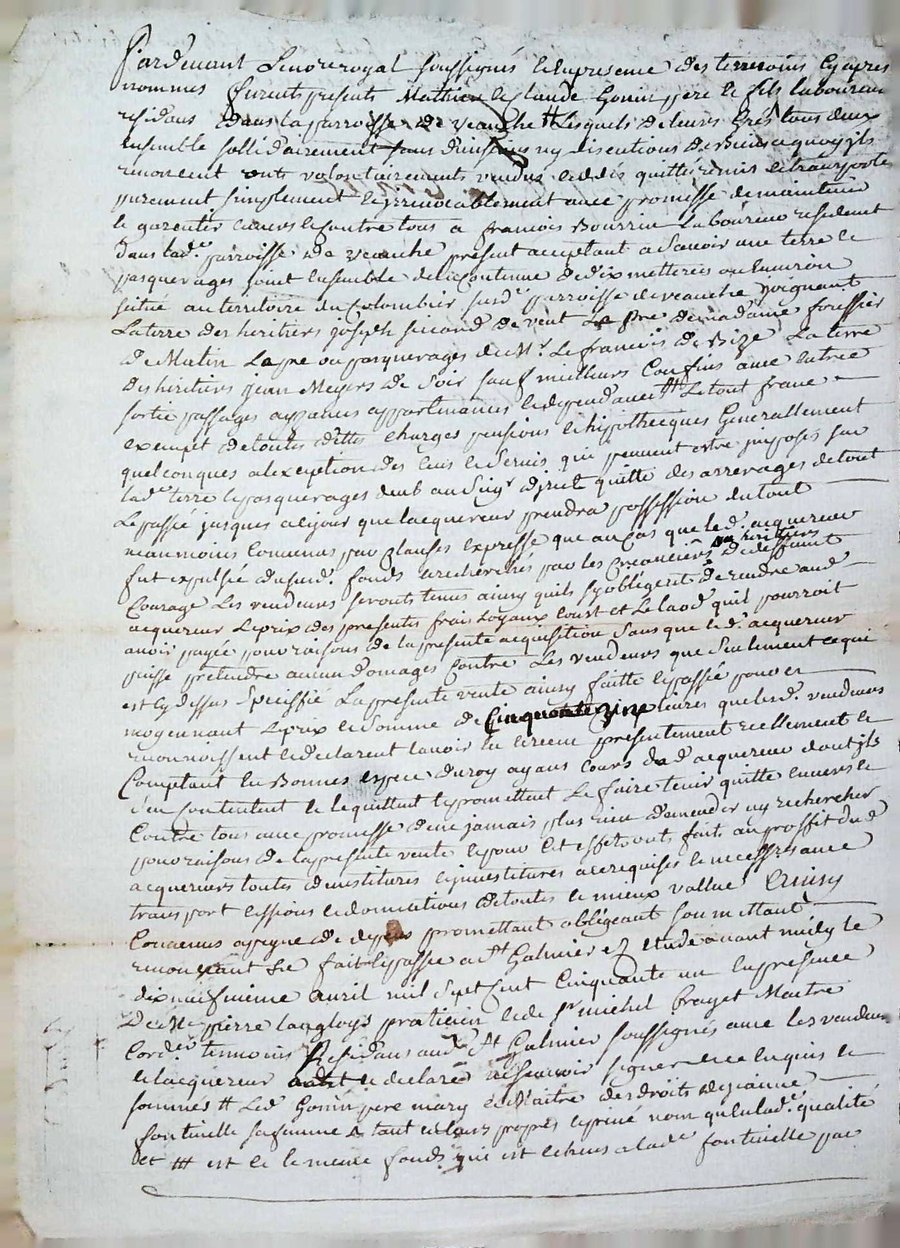 Pardevant Le nore royal soussignés et En presence des temoins Cy apres
nommes furent presents Mathieu et Claude Gonin pere et fils laboureur
residans dans la parroisse de veauche # Lesquels de leurs Grés tous deux
Ensemble sollidairement sans division ny discutions de Biens a quoy ils
renoncent onts volontairements vendus cedés quitté remis et transporté
purement simplement et irrevocablement avec promesse de maintenir
et garentir envers et contre tous a francois Bourrin Laboureur residant
Dans lade parroisse de veauche present acceptant a Savoir une terre et
pasquerages joint Ensemble de la Contenue de dix metterées ou Environ
scitué au territoire du Colombier susde parroisse de veauche joignant
La terre des heritiers joseph second de vent Le pre de madame foussier
de Matin Le pre ou pasquerages de Mr Le francois de Bize La terre
des heritiers jean Meyers de Soir sauf meilleurs Confins avec Entrée
sortie passages aysances appartenances et dependances Le tout franc
exempt de toutes dettes charges pensions et hipotheques Generallement
quelconques a lexeption des Cens et Servis qui peuvent estre imposés sur
lade terre et pasquerages deub au Seigr direct quitte des arrerages de tout
Le passé jusques a ce jour que lacquereur prendra possession du tout
neanmoins Convenus par Clauses expresse que au Cas que led. acquereur
fut expulsé dusud. fonds et recherchés par les Creanciers ou heritiers de deffunt
Courage Les vendeurs seronts tenus ainsy quils sy obligent de rendre aud
acquereur Le prix des presentes frais Loyaux Cout et Le laod quil pourroit
avoir payée pour raisons de la presente acquisition Sans que led. acquereur
puisse pretendre aucun domages Contre Les vendeurs que Seulement ce qui
est Cy dessus Speciffié La presente vente ainsy faitte et passée pour et
moyennant Le prix et Somme de Cinquante livres que lesd. vendeurs
reconnoissent et declarent lavoir Eu et receu presentement reellement et
Comptant En Bonnes espece du roy ayans Cours dud acquereur dont ils
sen Contentent et le quittent et promettent Le faire tenir quitte Envers et
Contre tous avec promesse den jamais plus rien demender ny rechercher
pour raisons de la presente vente et pour Cet effet onts faits au proffit dud
acquereurs toutes devestitures et investitures a ce requises et necessres avec
transport cessions et donnations de toutes et mieux vallue Ainsy
Convenus a peyne de depens promettant obligeant soumettant
renonçant fait et passée a St Galmier Etude avant midy le
dix neufvieme avril mil sept Cent Cinquante un En presence
De Me pierre Langloys praticien et de Sr michel Craget Maitre
Corder temoins Residans aud St Galmier soussignés avec les vendeurs
et lacquereur a declaré ne Scavoir signer de ce Enquis et
sommés # Led Gonin pere mary et Maitre des droits de jeanne
fontinelle sa femme tant en leurs propres et privé nom quen lade qualité
et # est et le meme fonds qui est echeus a lade fontinelle par